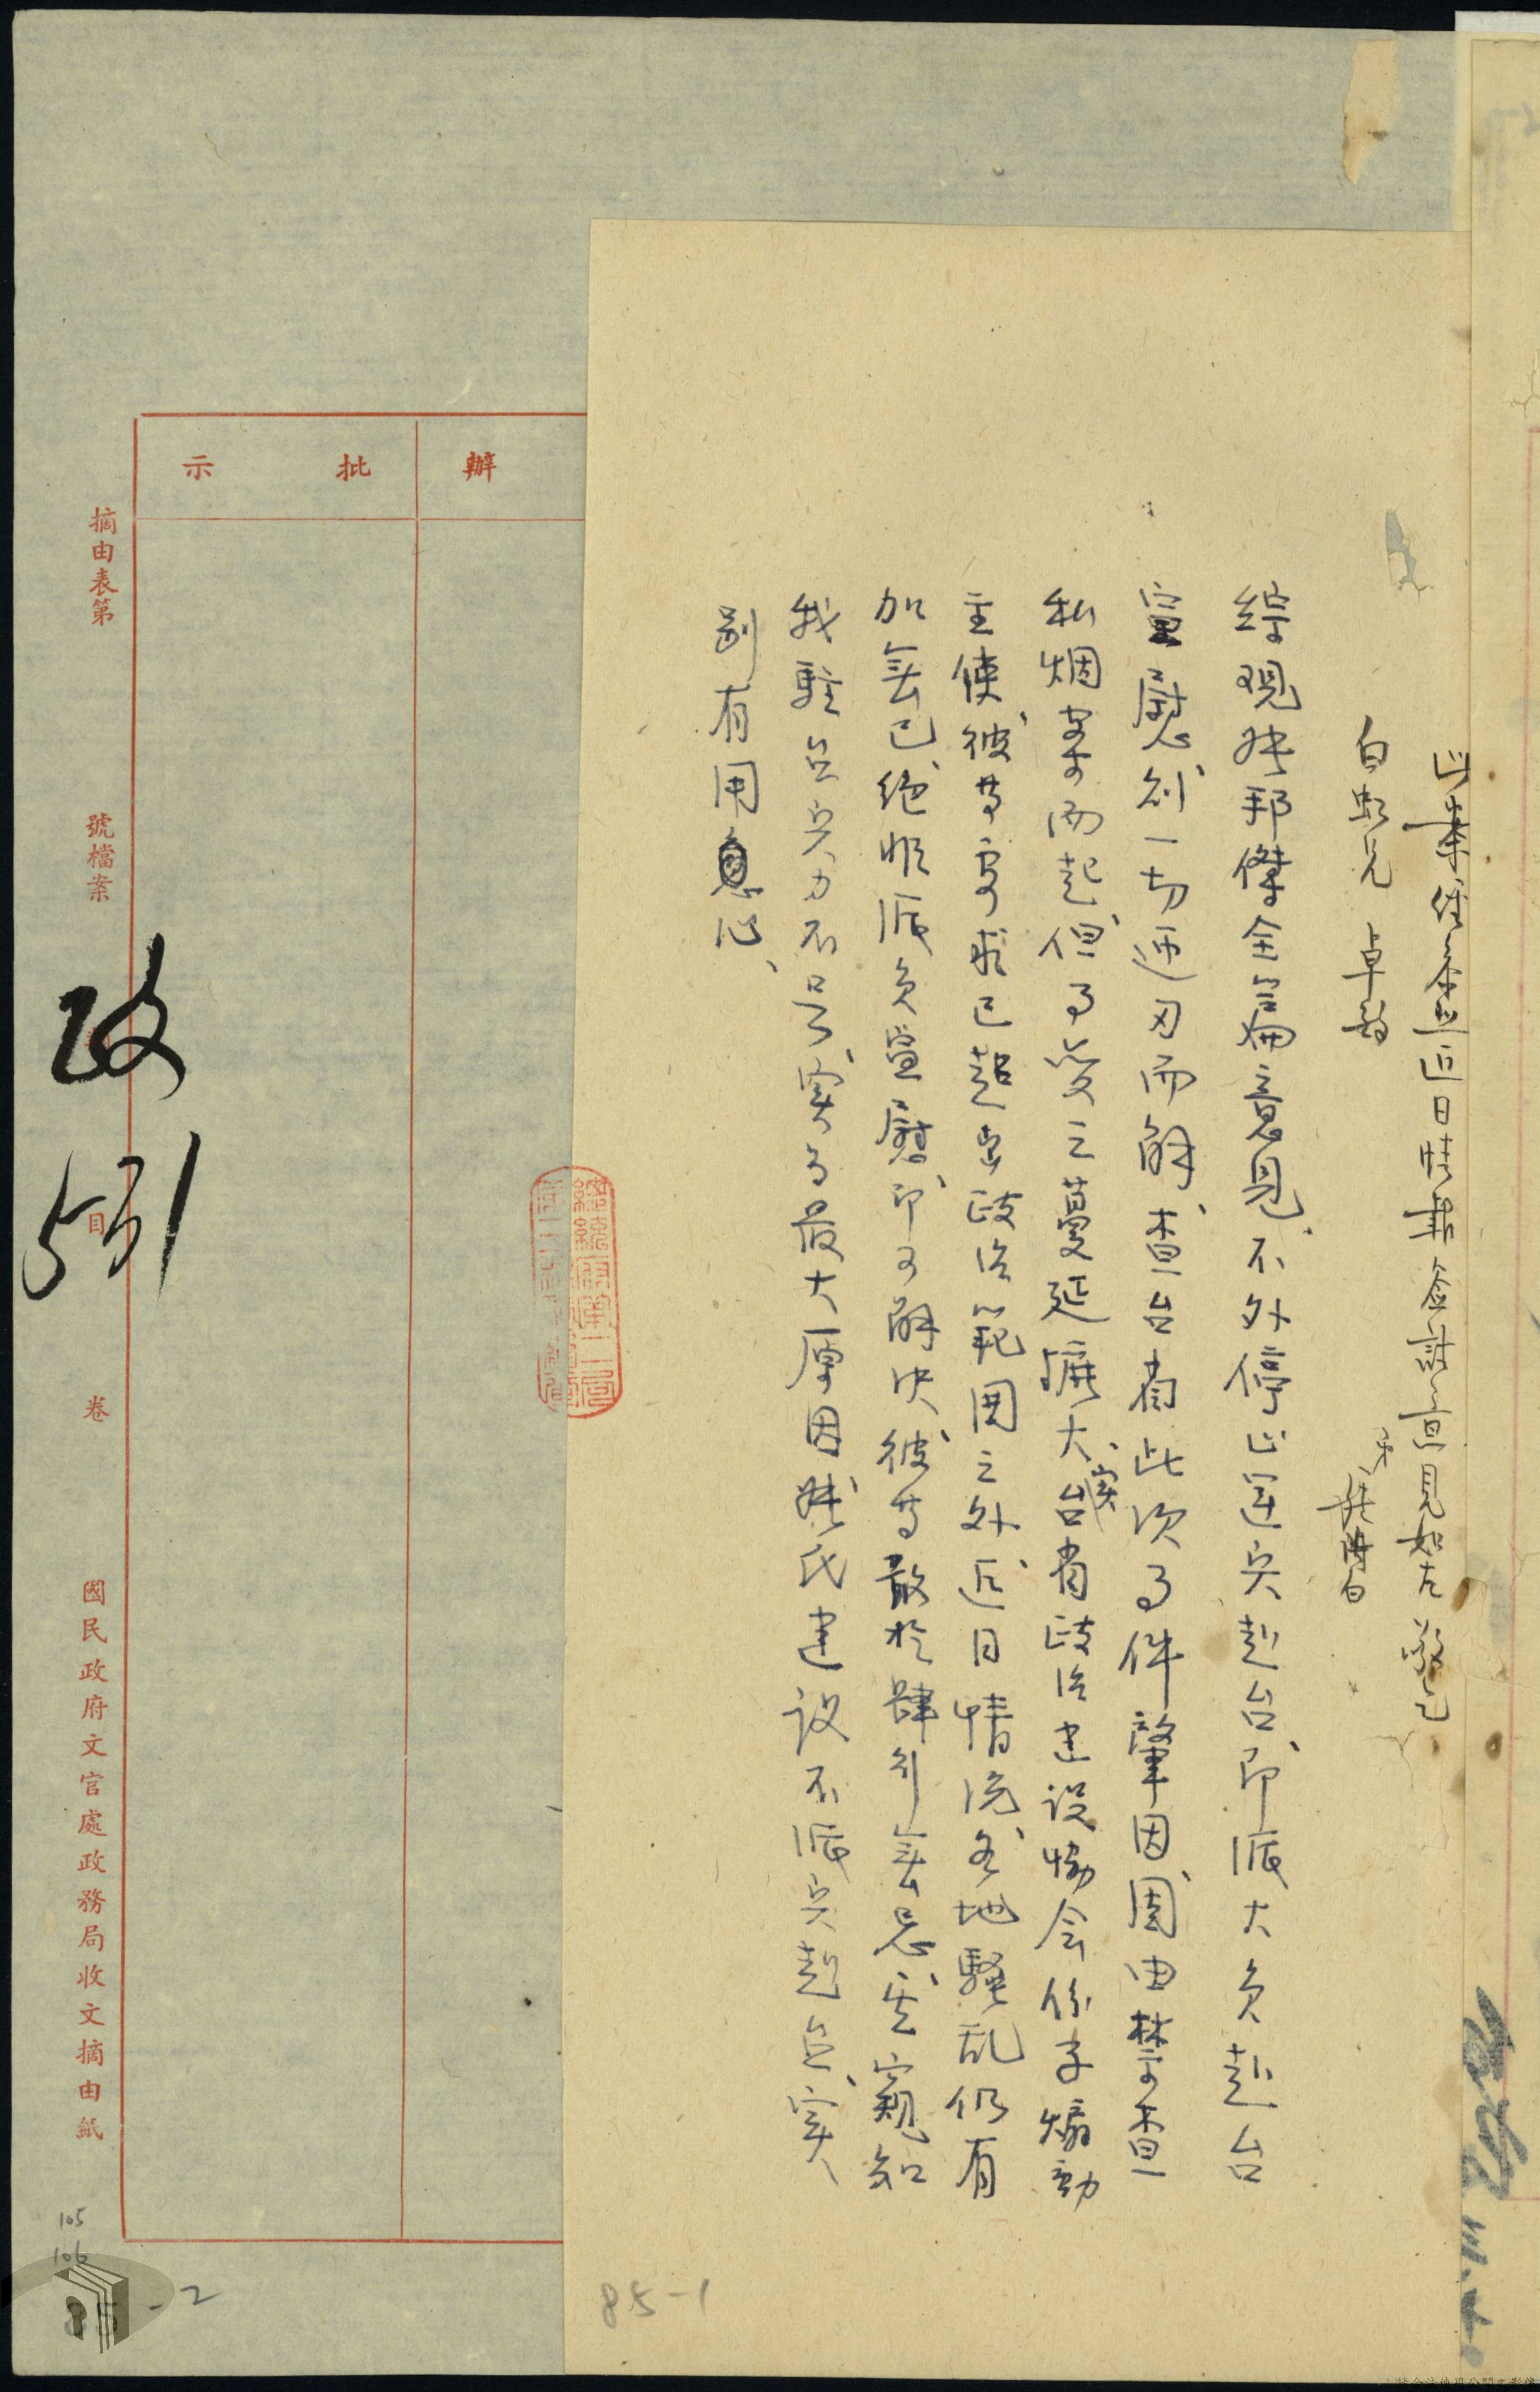 此案經參照近日情報簽註意見如左敬乞
白虹兄 卓裁
弟
綜观張邦傑全篇意見、不外停止運兵赴台、即派大員赴台
宣慰、則一切迎刃而解、查台省此次事件肇因、固由禁查
私烟案而起、但事変之蔓延擴大、實台省政治建設協会份子煽動
主使、彼等要求已超出政治範圍之外、近日情况、各地騷乱仍有
加無已、絕非派員宣慰、即可解决、彼等敢於肆行無忌、其窺知
我駐台兵力不足、實為最大原因、張氏建設不派兵赴台、实
別有用心、
辦
批示
摘由表第
號檔案
目
卷
國民政府文官處政務局收文摘由紙
政
531
總統府第二局
105
106
85-2
85-1